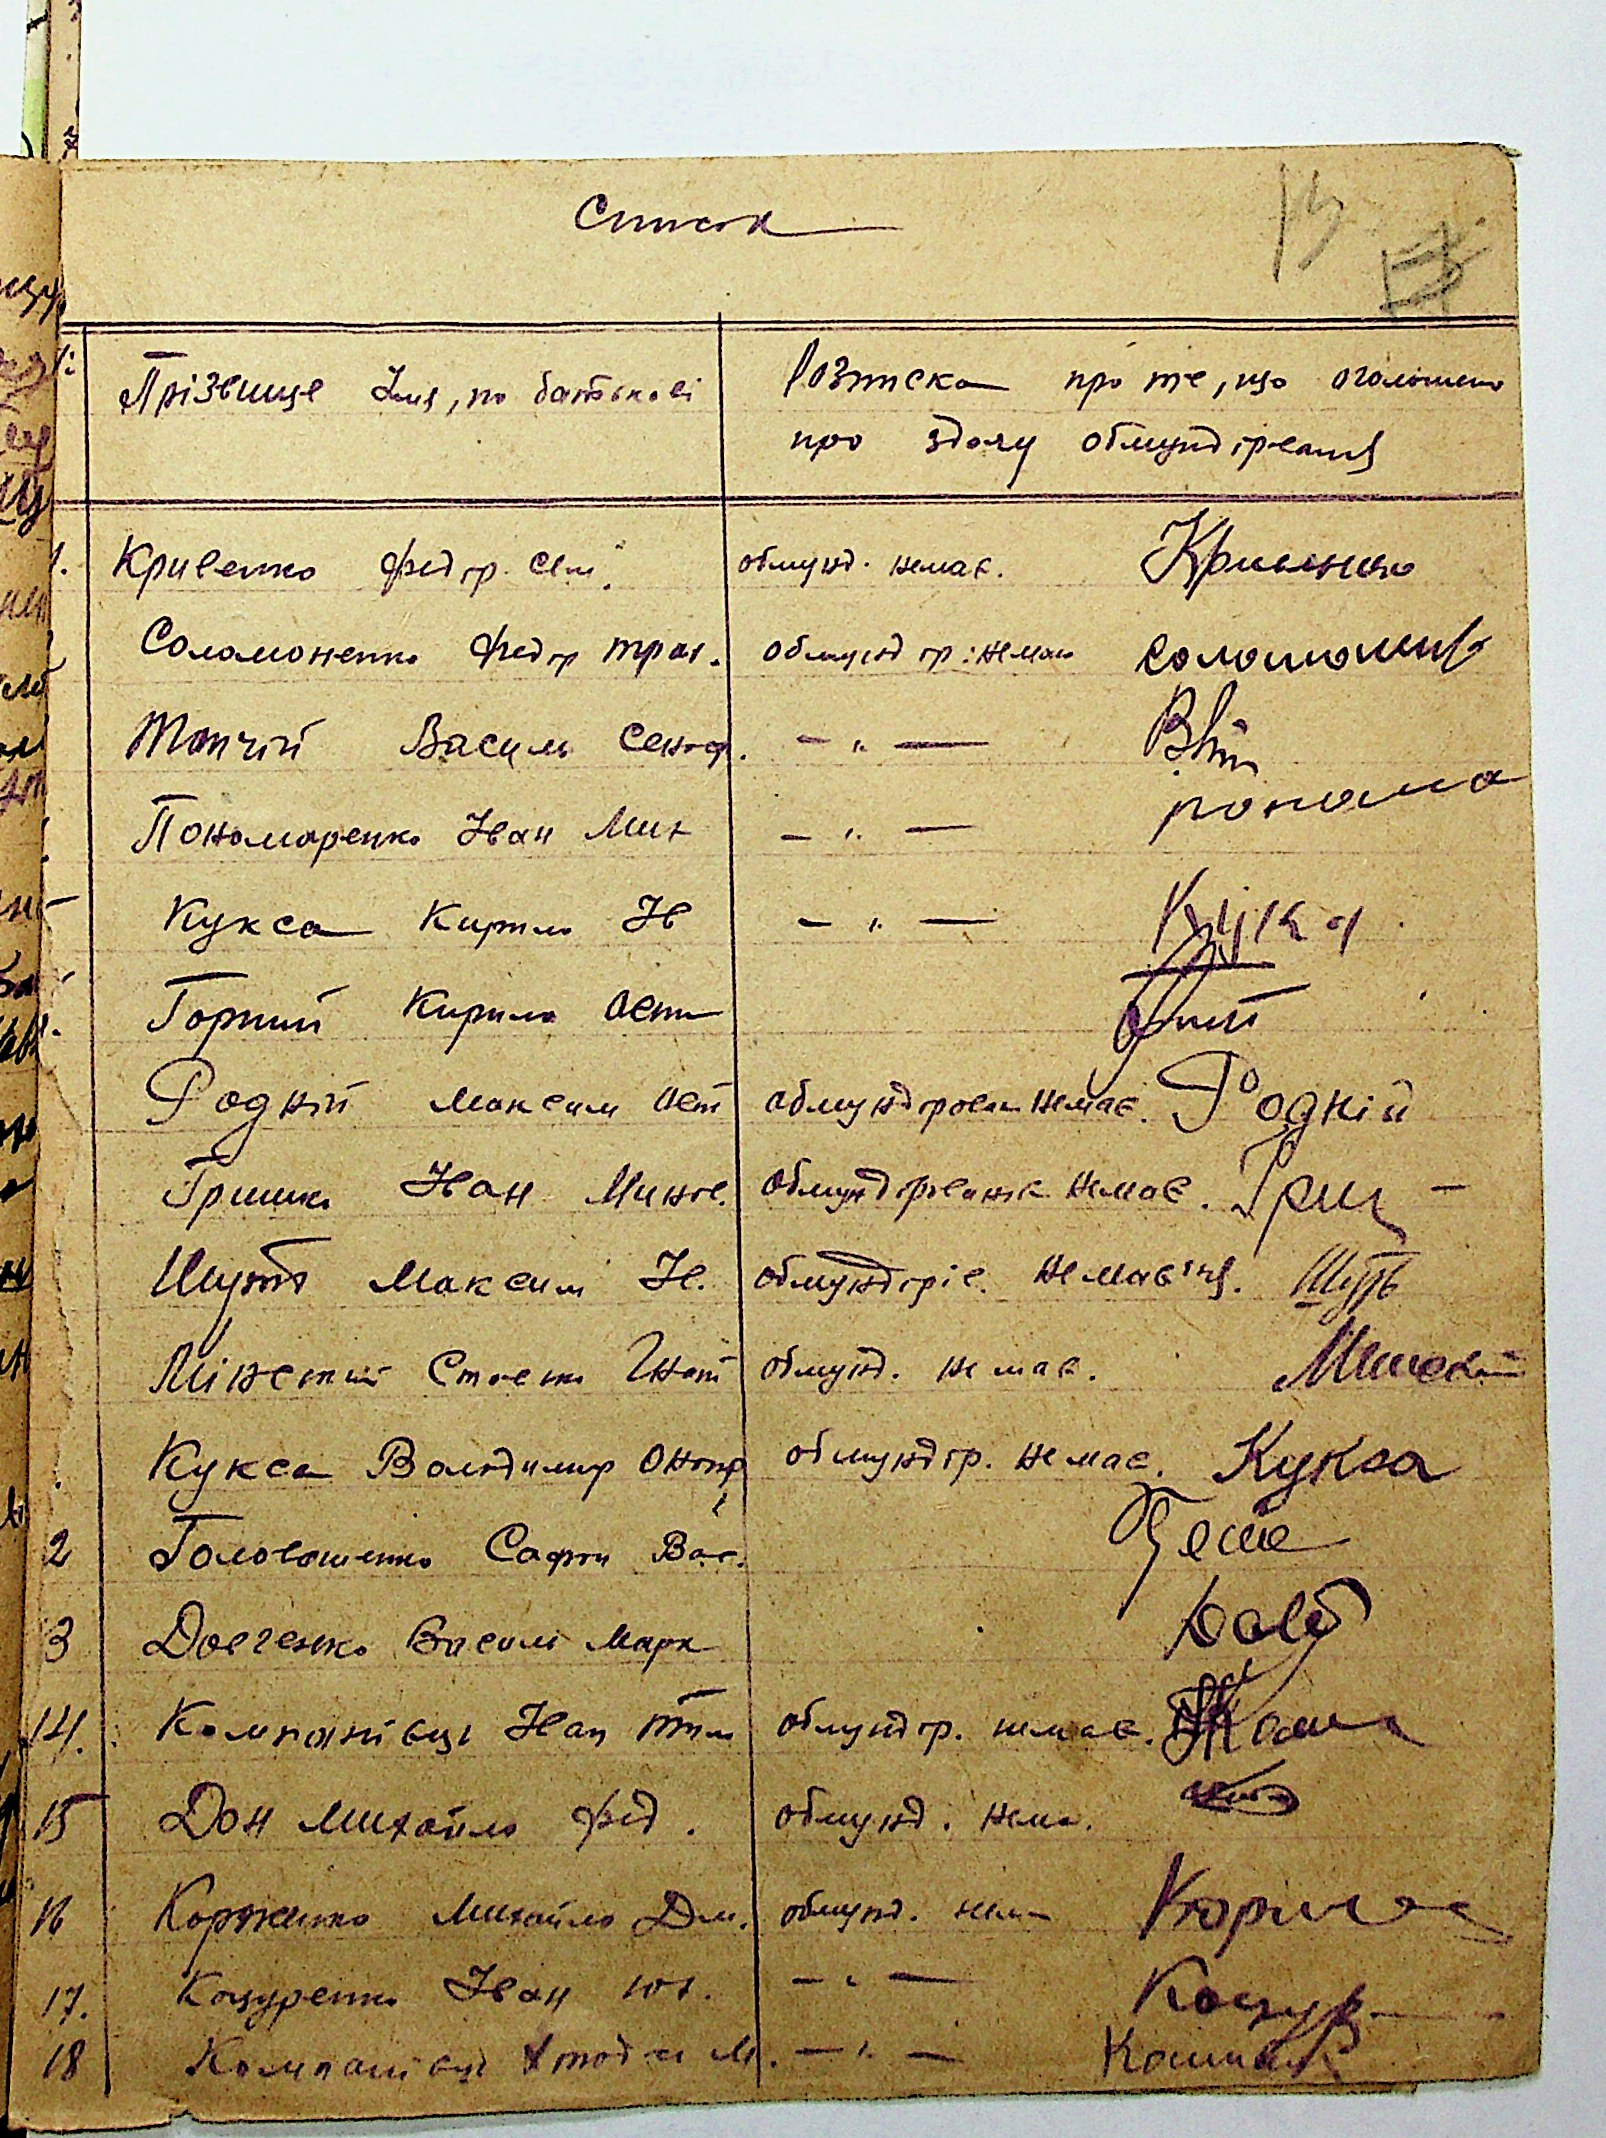 Список
13
Прізвище Імя, по батькові
Розписка про те, що оголошено
про здачу обмундірваня
1. Кривенко Федір Сем. обмунд. немає. Кривенко
Соломоненко Федір Трох. обмундір. немаю Соломоненко
Топчій Василь Сеноф. — " —
Пономаренко Іван Мих — " — понома
Кукса Кирило Ів — " — Кукса
Горний Кирило Ост
Родній Максим Ост обмундірован немає. Родній
Гришко Іван Минов. обмундірованя немає. Гриш
Шуть Максим Ів. обмундіров. немаєця. Шуть
Мінський Степан Гнат обмунд. немає. Минский
Кукса Володимир Онопр обмундір. немає. Кукса
2 Головашенко Сафон Вас.
3 Довгенко Василь Марк Довг
14. Компаніець Іван Тим обмундір. немає. Комп
15 Дон Михайло Фед. обмунд. нема.
16 Корженко Михайло Дм. обмунд. нема
17. Коцуренко Іван Юх. — " — Коцур
18 Компаніець М. — " — Компан